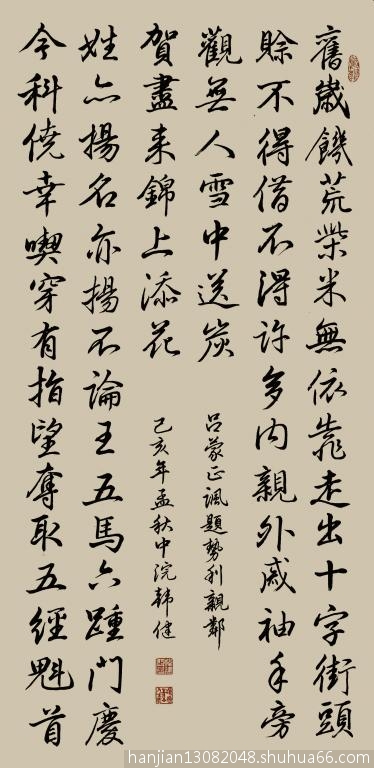 舊歲饑荒柴米無依靠走出十字街頭
賒不得借不得許多內親外戚袖手旁
觀無人雪中送炭
吕蒙正諷題勢利親鄰
今科僥幸喫穿有指望奪取五經魁首
姓亦揚名亦揚不論王五馬六踵門慶
賀盡来錦上添花
己亥年孟秋中浣韓健
hanjian13082048.shuhua66.com